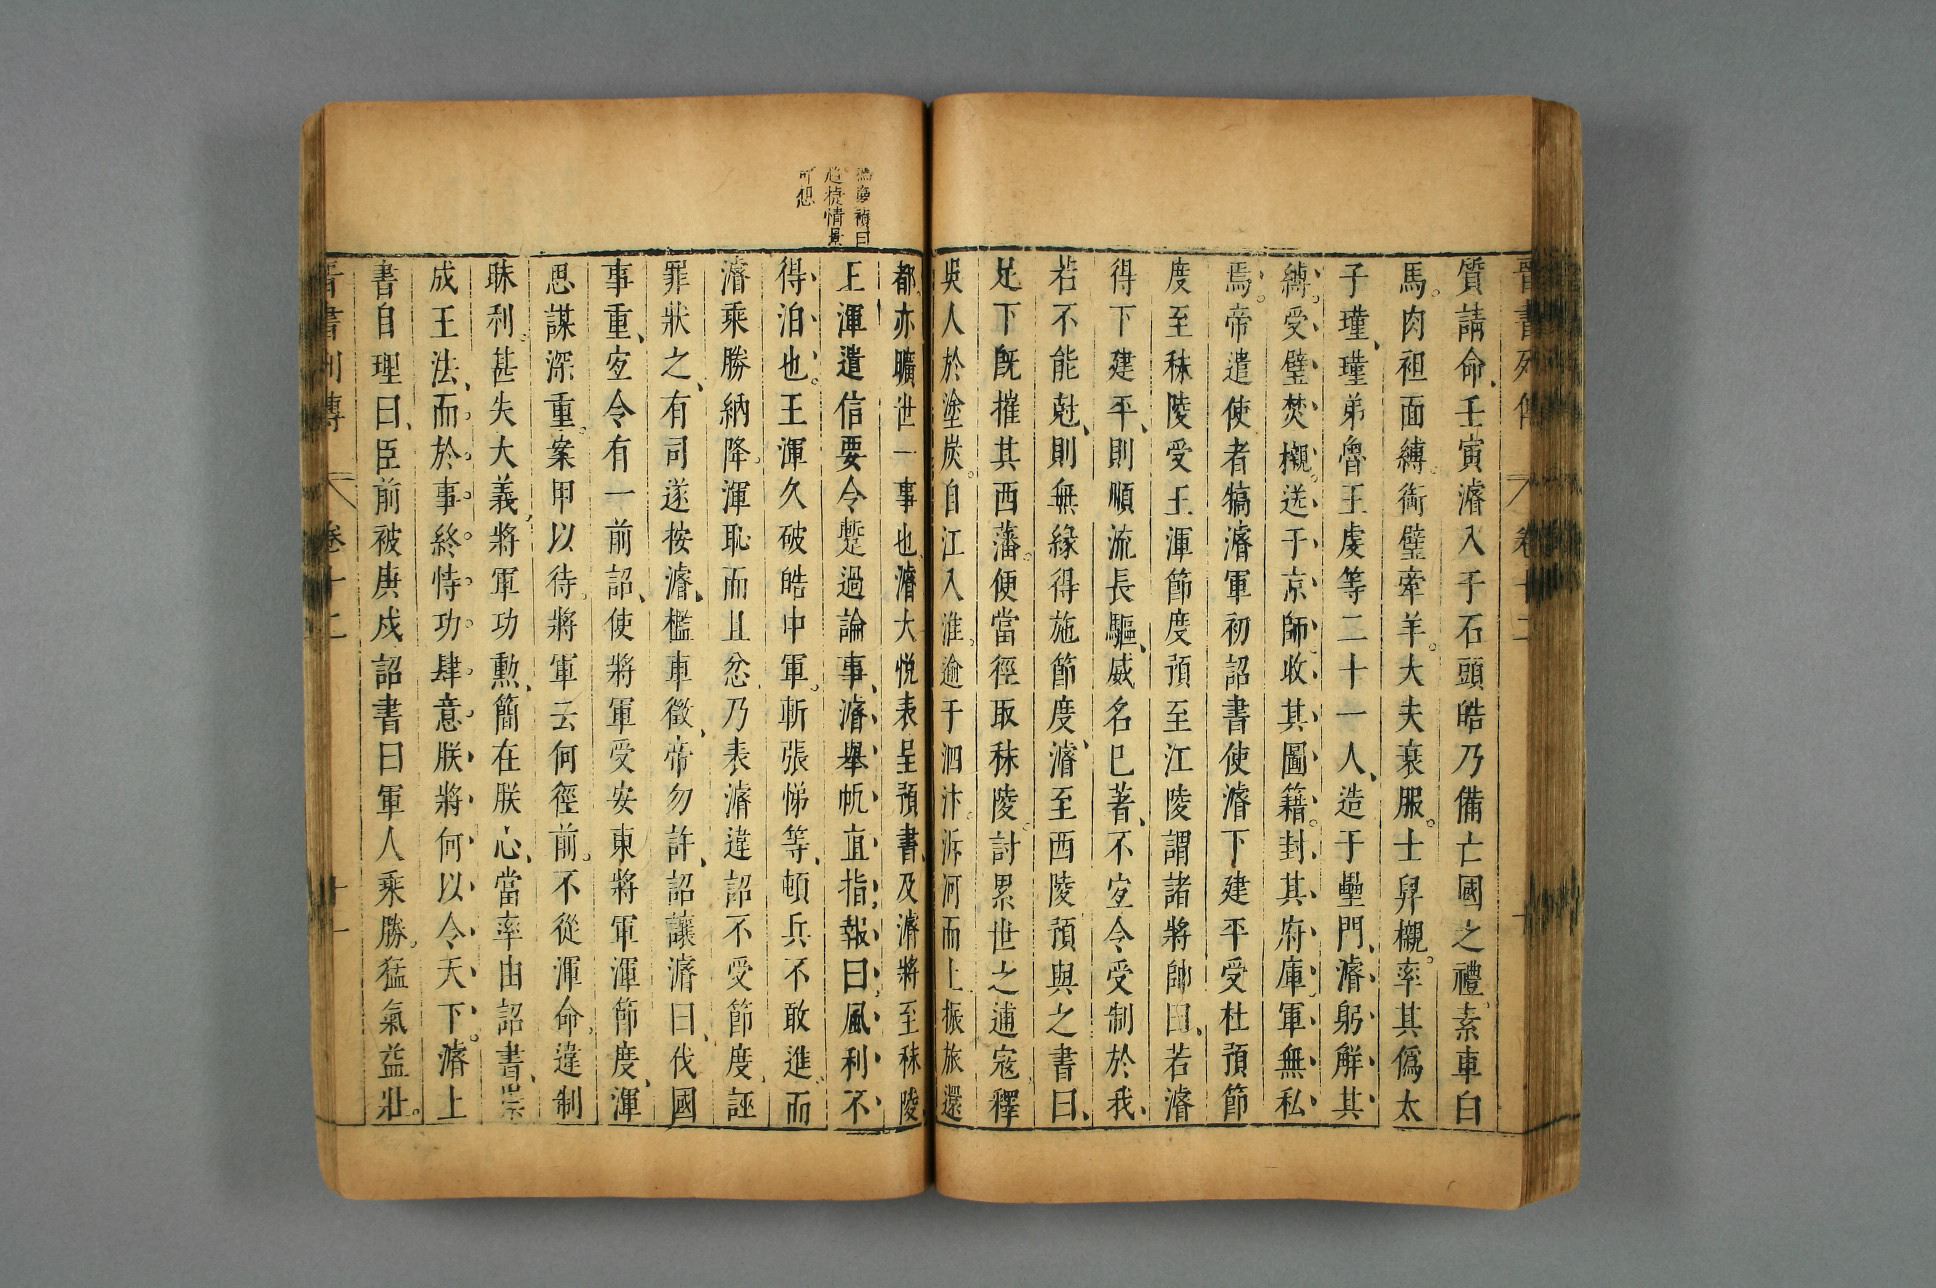 晉書列傳 卷十二 十
質請命壬寅濬入于石頭皓乃備亡國之禮素車白
馬。肉袒面縛。銜璧牽羊。大夫衰服。士舁櫬。率其僞太
子瑾、瑾弟魯王虔等二十一人、造于壘門、濬躬解其
縛。受璧焚櫬。送于京師收其圖籍。封其府庫軍無私
焉。帝遣使者犒濬軍初詔書使濬下建平受杜預節
度至秣陵受王渾節度預至江陵謂諸將帥曰、若濬
得下建平、則順流長驅、威名已著、不宜令受制於我、
若不能尅、則無緣得施節度、濬至西陵預與之書曰、
足下旣摧其西藩。便當徑取秣陵。討累世之逋寇釋
吳人於塗炭。自江入淮。逾于泗汴。泝河而上振旅還
都。亦曠世一事也、濬大悅表呈預書、及濬將至秣陵、
王渾遣信要令蹔過論事、濬舉帆直指報曰風利不
得泊也。王渾久破皓中軍。斬張悌等、頓兵不敢進、而
濬乘勝納降。渾恥而且忿、乃表濬違詔不受節度、誣
罪狀之、有司遂按濬、檻車徵、帝勿許、詔讓濬曰、伐國
事重、宜令有一前詔、使將軍受安東將軍渾節度、渾
思謀深重。案甲以待。將軍云何徑前。不從渾命、違制
昧利。甚失大義、將軍功勲、簡在朕心、當率由詔書、崇
成王法、而於事終恃功肆意朕將何以令天下。濬上
書自理曰、臣前被庚戌詔書曰軍人乘勝。猛氣益壯。
晉書列傳 卷十二 十一
曰
趨捷情景
可想